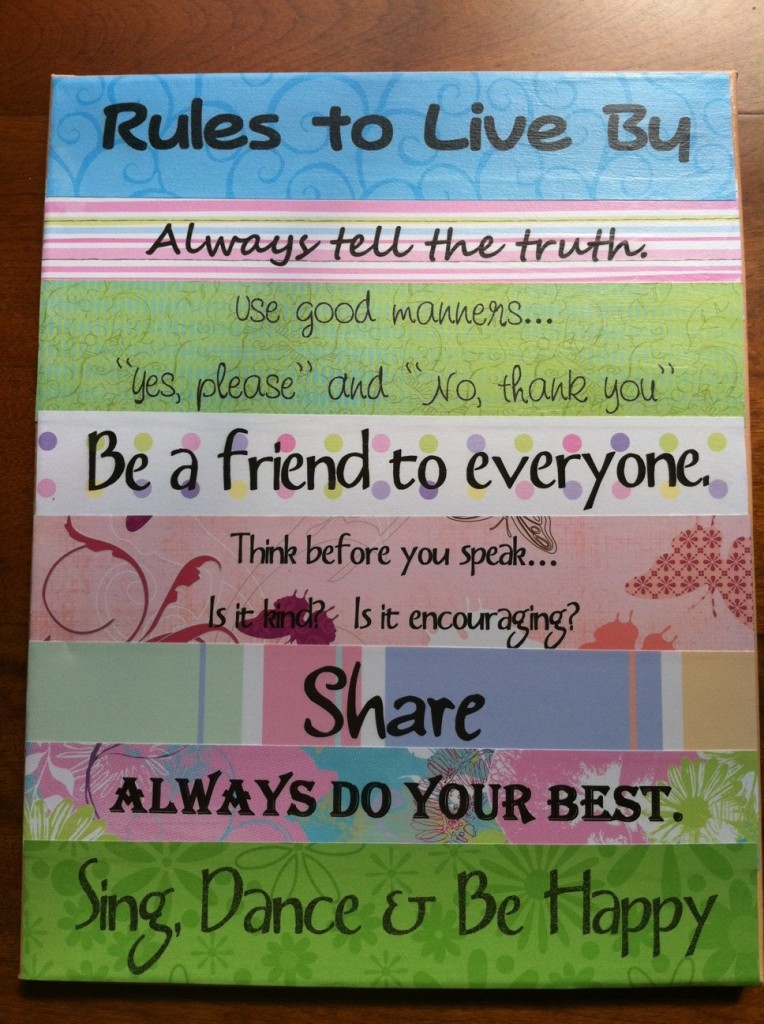 Rules to Live By
Always tell the truth.
Use good manners...
"Yes, please" and "No, thank you"
Be a friend to everyone.
Think before you speak...
Is it kind? Is it encouraging?
Share
ALWAYS DO YOUR BEST.
Sing, Dance & Be Happy